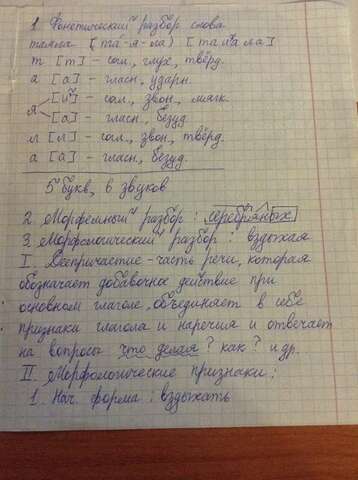 1. Фонетический разбор слова
таяла [та́-я-ла] [тай'ала]
т [т] – сол., глух., твёрд.
а [а] – гласн., ударн.
[й'] – сол., звон., мягк.
я
[а] – гласн., безуд.
л [л] – сол., звон., твёрд.
а [а] – гласн., безуд.
5 букв, 6 звуков
2. Морфемный разбор: серебряных
3. Морфологический разбор: вздыхая
I. Деепричастие – часть речи, которая
обозначает добавочное действие при
основном глаголе, объединяет в себе
признаки глагола и наречия и отвечает
на вопросы что делая? как? и др.
II. Морфологические признаки:
1. Нач. форма: вздыхать